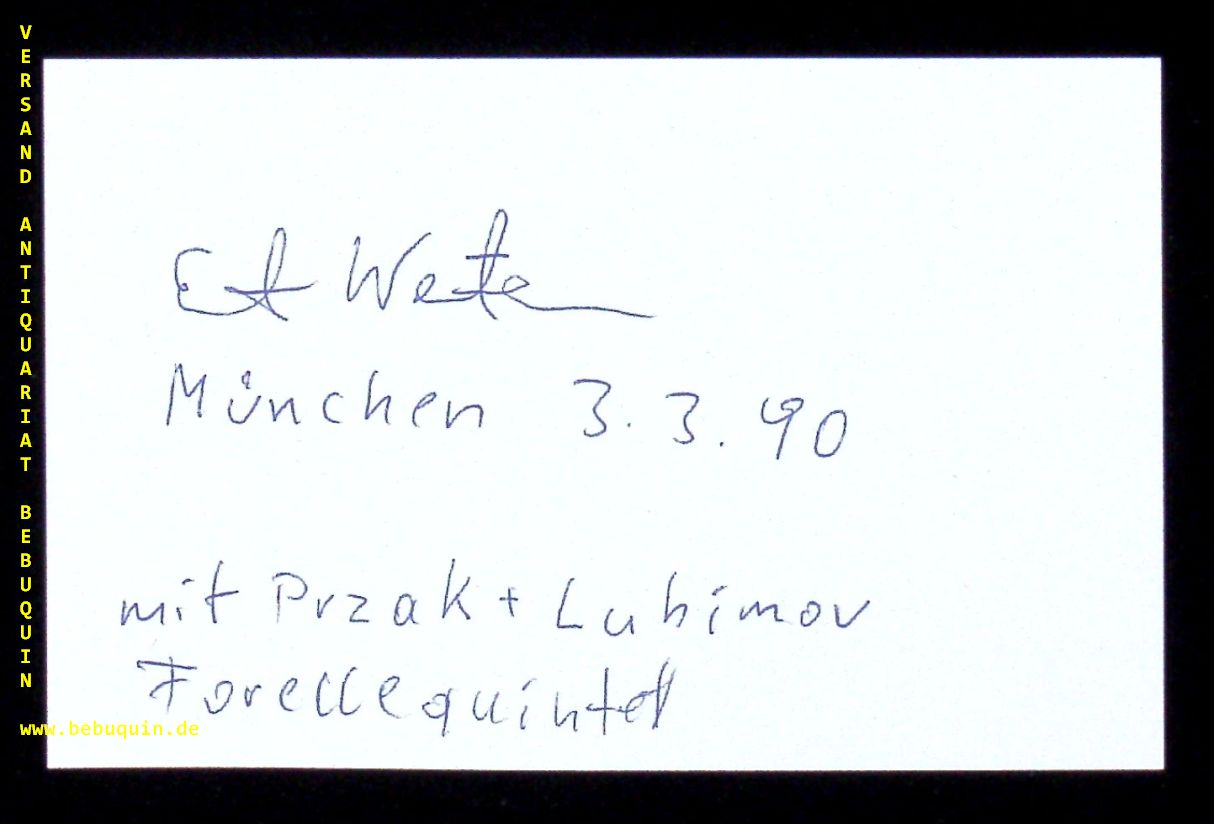 VERSAND ANTIQUARIAT BEBUQUIN
München 3.3.90
mit Przak + Lubimov
Forellequintett
www.bebuquin.de